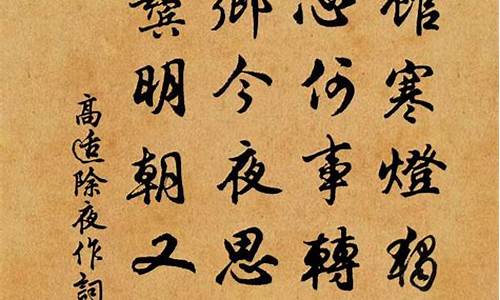 館寒燈獨
心何事轉
鄉今夜思
鬢明朝又
高適除夜作詞